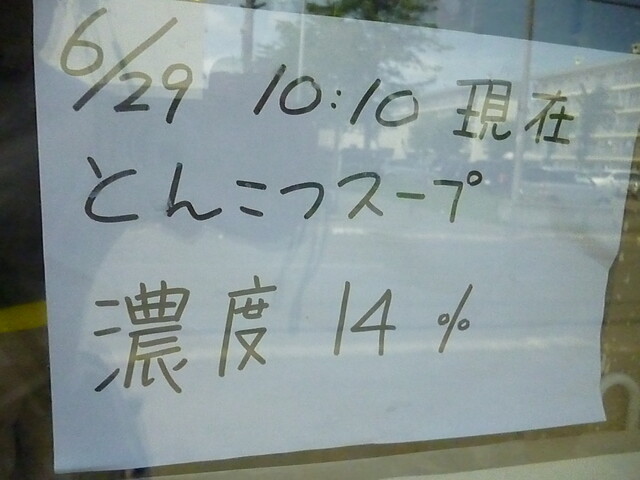 6/29 10:10 現在
とんこつスープ
濃度 14%